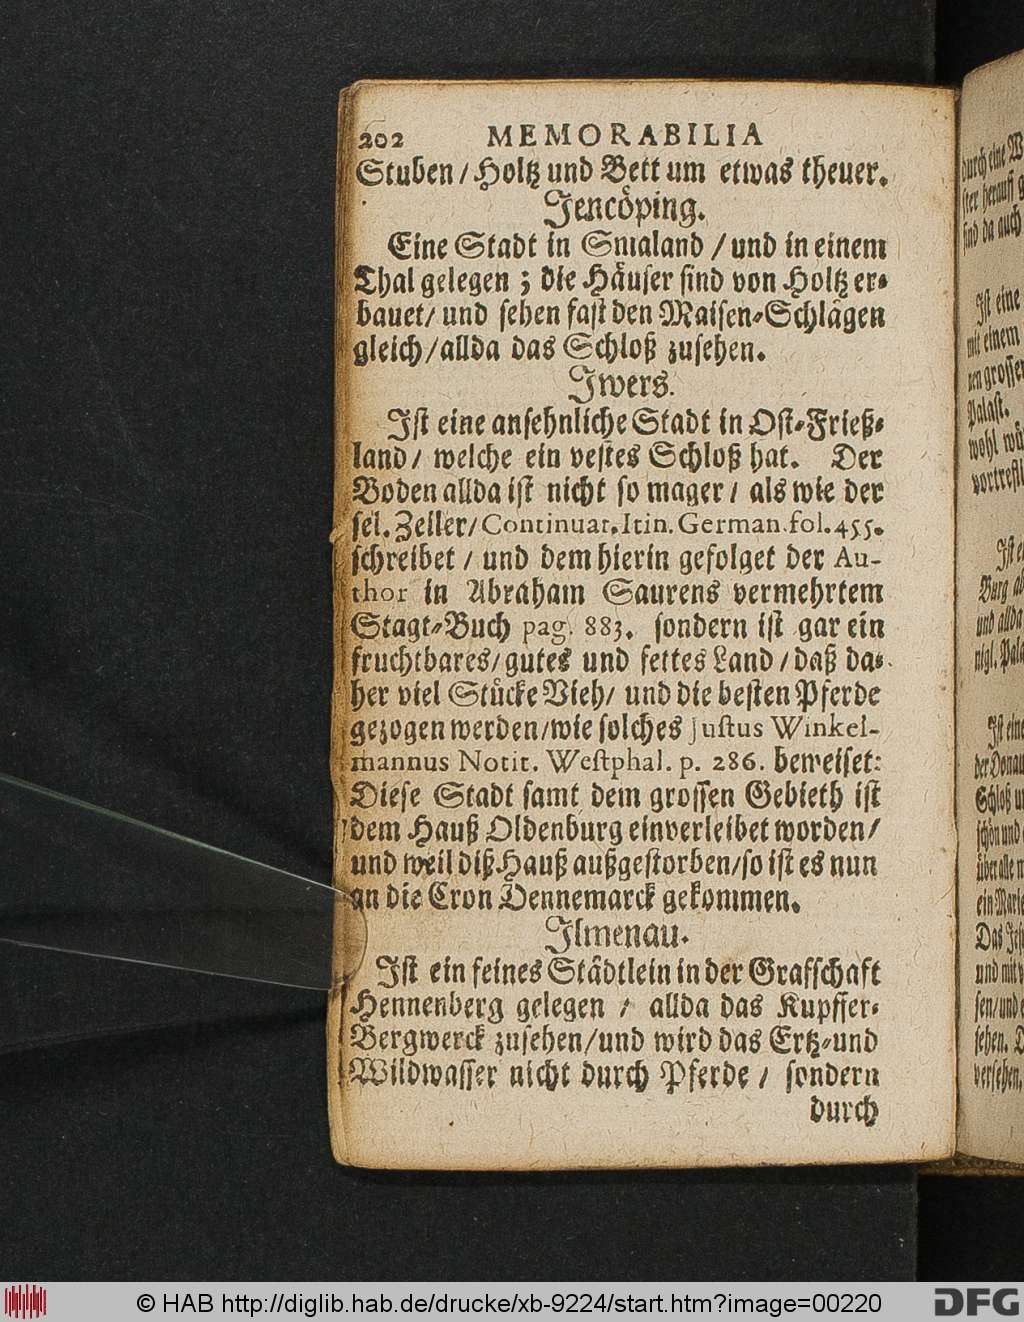 202 MEMORABILIA
Stuben/Holtz und Bett um etwas theuer.
Jencöping.
Eine Stadt in Smaland/und in einem
Thal gelegen; die Häuser sind von Holtz er-
bauet/und sehen fast den Maisen-Schlägen
gleich/allda das Schloß zusehen.
Jwers.
Jst eine ansehnliche Stadt in Ost-Frieß-
land/welche ein vestes Schloß hat. Der
Boden allda ist nicht so mager/als wie der
sel. Zeller/Continuat. Itin. German. fol. 455.
schreibet/und dem hierin gefolget der Au-
thor in Abraham Saurens vermehrtem
Stagt-Buch pag. 883. sondern ist gar ein
fruchtbares/gutes und fettes Land/daß da-
her viel Stücke Vieh/und die besten Pferde
gezogen werden/wie solches Justus Winkel-
mannus Notit. Westphal. p. 286. beweiset:
Diese Stadt samt dem grossen Gebieth ist
dem Hauß Oldenburg einverleibet worden/
und weil diß Hauß außgestorben/so ist es nun
an die Cron Dennemarck gekommen.
Jlmenau.
Jst ein feines Städtlein in der Grafschaft
Hennenberg gelegen/allda das Kupffer-
Bergwerck zusehen/und wird das Ertz-und
Wildwasser nicht durch Pferde/sondern
durch
durch eine
herauff
sind da auch
Jst eine
mit einem
nen grossen
Palast.
wohl
Burg
und allda
nigl.
Jst eine
der Donau
Schloß
schön und
über alle
ein
Das
und mit
sen/und
sehen.
versehen.
© HAB http://diglib.hab.de/drucke/xb-9224/start.htm?image=00220
DFG